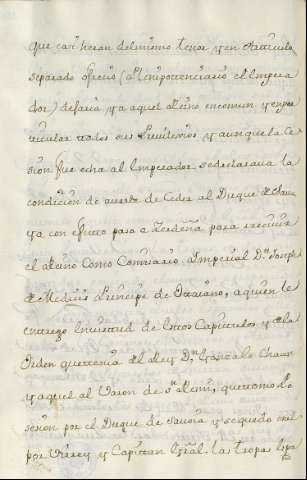 que casi heran del mismo tenor y en Articulo
separado ofrecio (al Plenipotenciario el Empera
dor) dejaria ya aquel Reino en comun y en par
ticular todos sus Privilexios y aunque la Ce
sion fue echa al Emperador se declarava la
condicion de averse de Ceder al Duque de Savo
ya con efecto paso a Zerdeña para recivir
el Reino Como Comisario Imperial Dn Joseph
de Medicis Principe de Otaiano, a quien le
entrego en virtud de estos Capitulos y de la
Orden que tenia del Rey Dn Gonzalo Chacon
y aquel al Varon de Sn Remi, que tomo Po
sesion por el Duque de Savoia y se quedo en el
por Virrey y Capitan Gral. las tropas